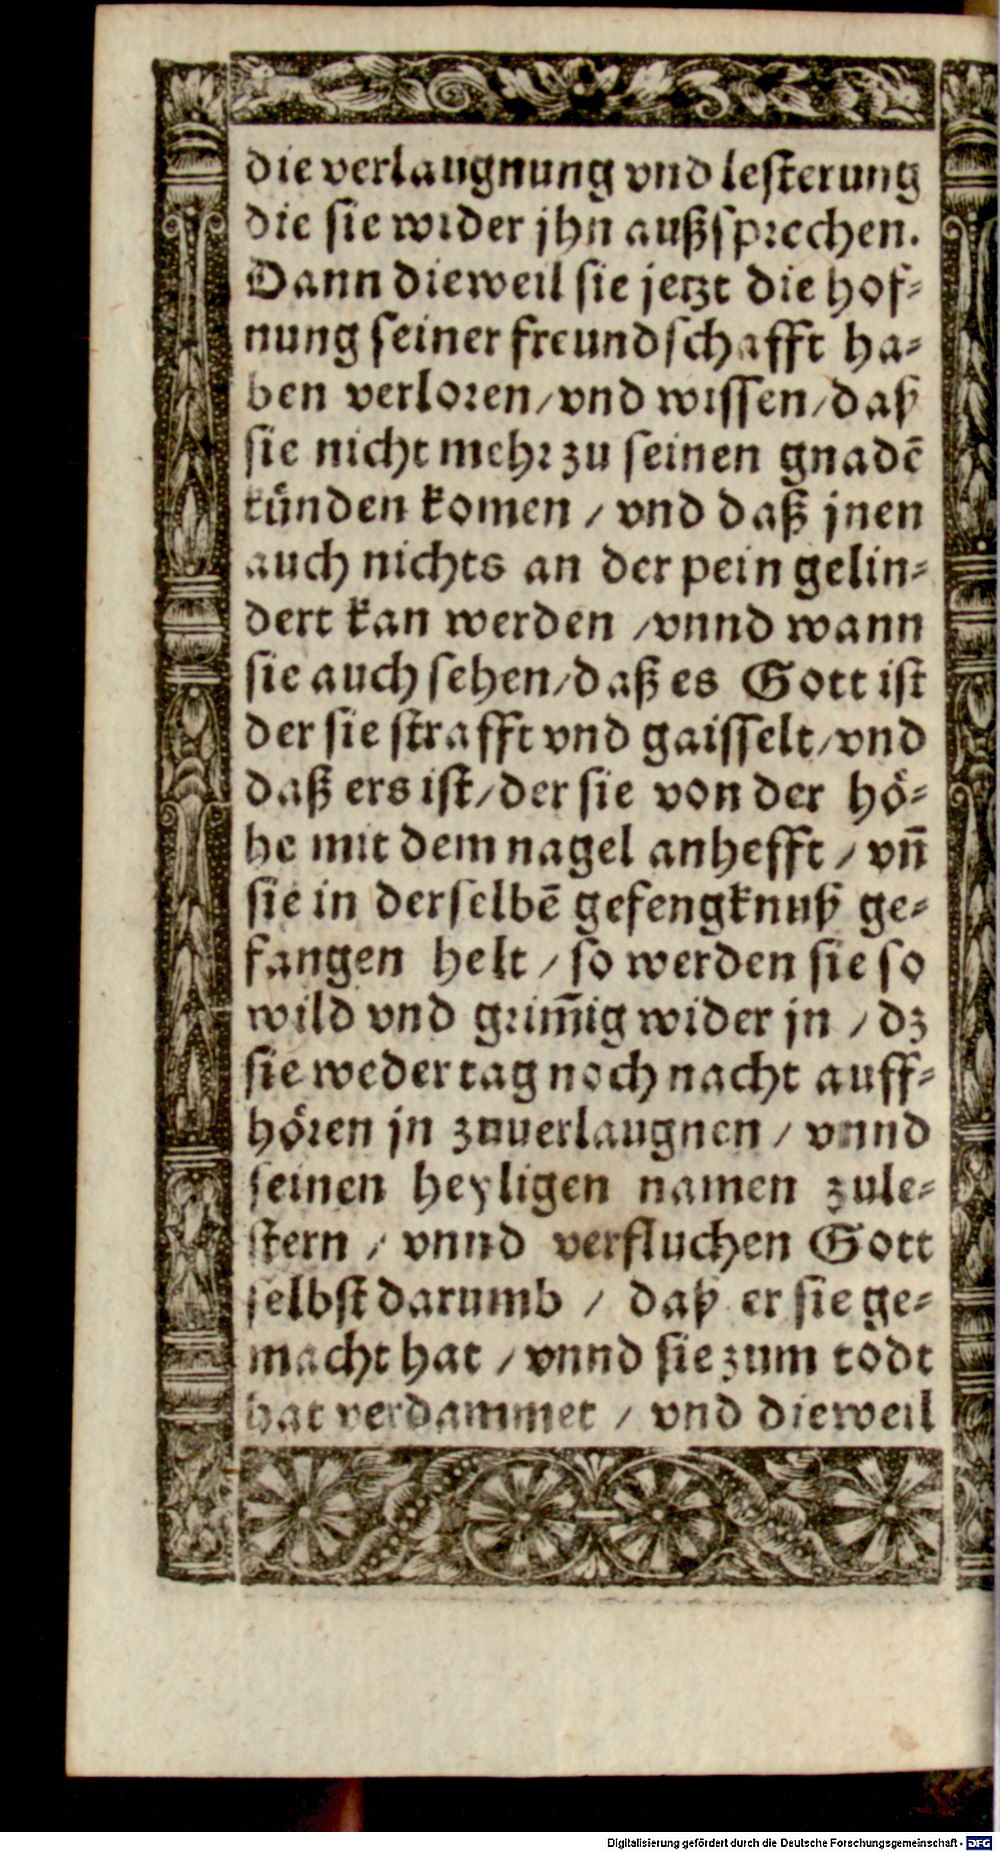 die verlaugnung vnd lesterung
die sie wider jhn außsprechen.
Dann dieweil sie jetzt die hof⸗
nung seiner freundschafft ha⸗
ben verloren/vnd wissen/daß
sie nicht mehr zu seinen gnadē
künden komen / vnd daß jnen
auch nichts an der pein gelin⸗
dert kan werden /vnnd wann
sie auch sehen/daß es Gott ist
der sie strafft vnd gaisselt/vnd
daß ers ist/der sie von der hö⸗
he mit dem nagel anhefft / vn̄
sie in derselbē gefengknuß ge⸗
fangen helt / so werden sie so
wild vnd grim̄ig wider jn / dz
sie weder tag noch nacht auff⸗
hören jn zuuerlaugnen / vnnd
seinen heyligen namen zule⸗
stern / vnnd verfluchen Gott
selbst darumb / daß er sie ge⸗
macht hat / vnnd sie zum todt
hat verdammet / vnd dieweil
Digitalisierung gefördert durch die Deutsche Forschungsgemeinschaft - DFG